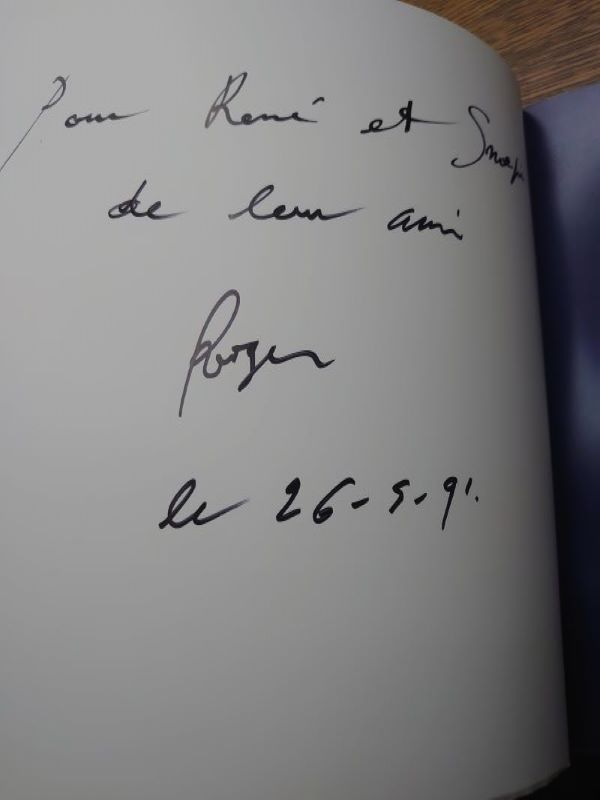 Pour René et
de leur ami
Roger
le 26-5-91.